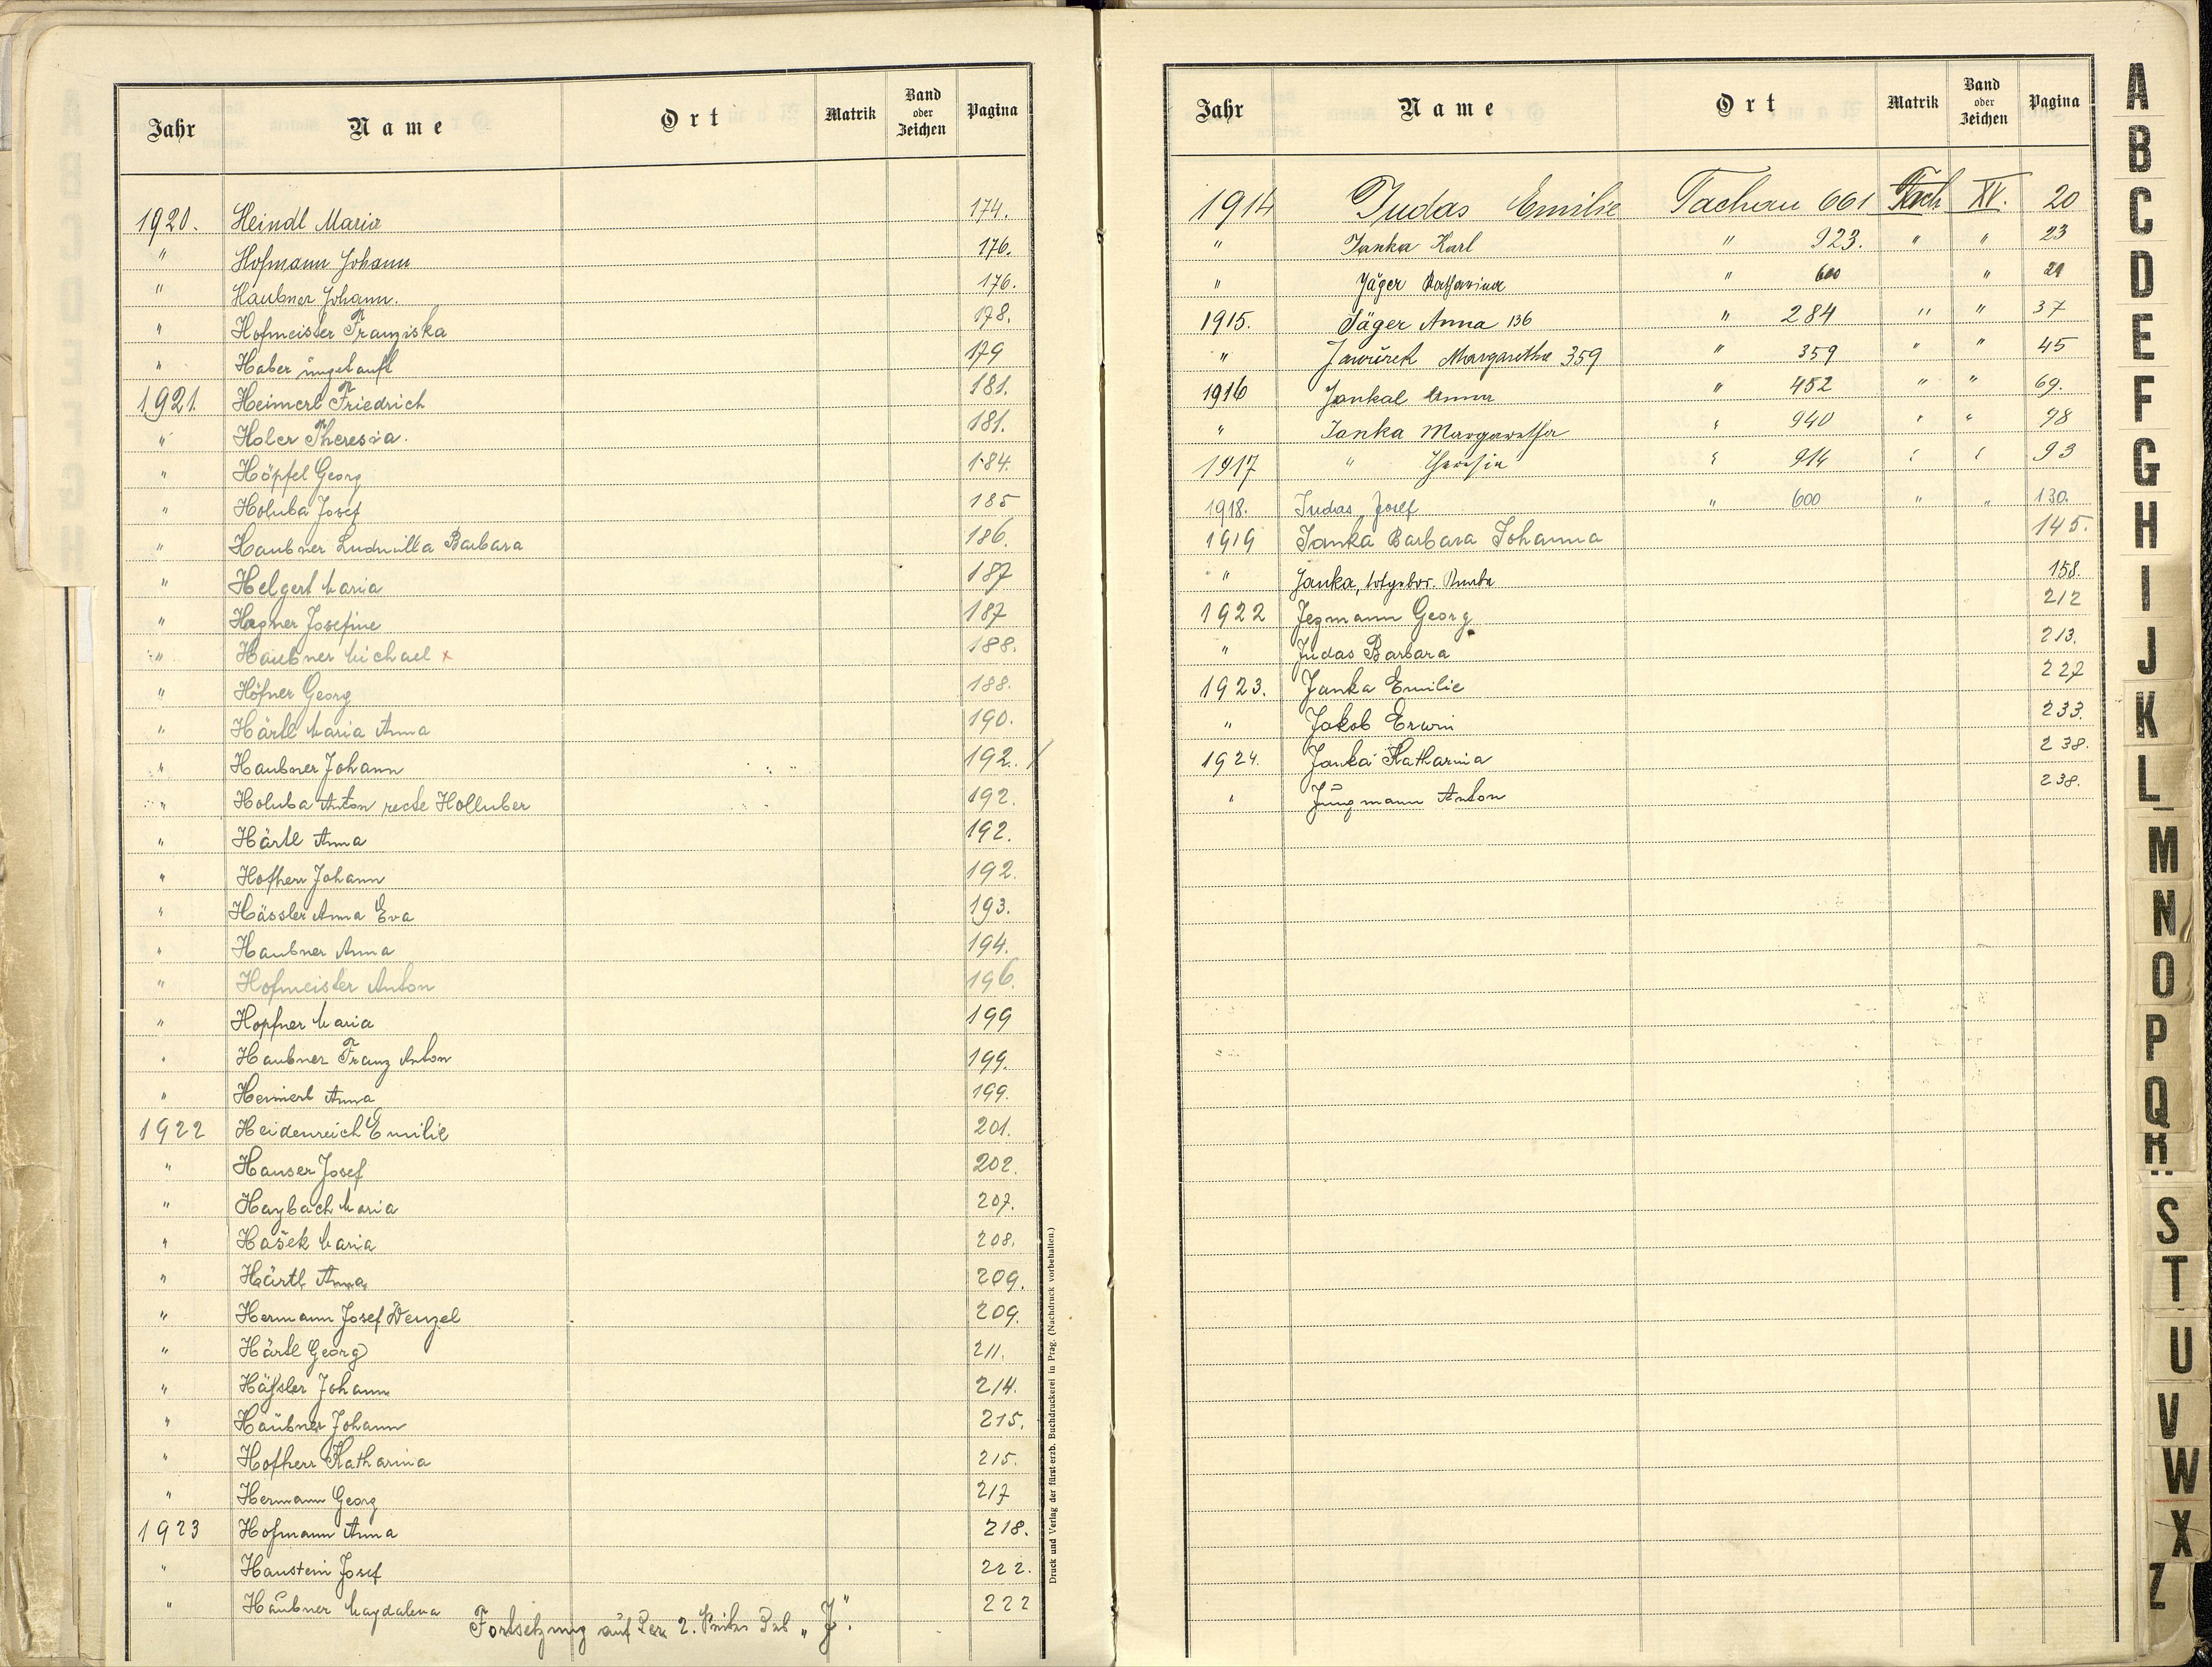 Jahr Name Ort Matrik Band oder Zeichen Pagina
1920. Heindl Maria 174.
" Hofmann Johann 176.
" Haubner Johann. 176.
" Hofmeister Franziska 178.
" Haber ungetauft 179
1921. Heimerl Friedrich 181.
" Holer Theresia. 181.
" Höpfel Georg 184.
" Holuba Josef 185
" Haubner Ludmilla Barbara 186.
" Helgert Maria 187
" Hegner Josefine 187
" Haubner Michael x 188.
" Höfner Georg 188.
" Härtl Maria Anna 190.
" Haubner Johann 192. /
" Holuba Anton recte Holluber 192.
" Härtl Anna 192.
" Hofherr Johann 192.
" Hässler Anna Eva 193.
" Haubner Anna 194.
" Hofmeister Anton 196.
" Hopfner Maria 199
" Haubner Franz Anton 199.
" Heimerl Anna 199.
1922 Heidenreich Emilie 201.
" Hauser Josef 202.
" Haybach Maria 207.
" Hašek Maria 208.
" Härtl Anna 209.
" Hermann Josef Wenzel 209.
" Härtl Georg 211.
" Häßler Johann 214.
" Haubner Johann 215.
" Hofherr Katharina 215.
" Hermann Georg 217
1923 Hofmann Anna 218.
" Haustein Josef 222.
" Haubner Magdalena 222
Fortsetzung auf der 2. Seite des „J".
Druck und Verlag der fürst-erzb. Buchdruckerei in Prag. (Nachdruck vorbehalten.)
Jahr Name Ort Matrik Band oder Zeichen Pagina
1914 Judas Emilie Tachau 661 Tach XV. 20
" Janka Karl " 923. " " 23
" Jäger Katharina " 600 " 21
1915. Jäger Anna 136 " 284 " " 37
" Jawůrek Margarethe 359 " 359 " " 45
1916 Jankal Anna " 452 " " 69.
" Janka Margaretha " 940 " " 78
1917 " Theresia " 914 " " 93
1918. Judas Josef " 600 " " 130.
1919 Janka Barbara Johanna 145.
" Janka, totgebor. Knabe 158.
1922 Jegmann Georg 212
" Judas Barbara 213.
1923. Janka Emilie 227
" Jakob Erwin 233.
1924. Janka Katharina 238.
" Jungmann Anton 238.
A
B
C
D
E
F
G
H
I
J
K
L
M
N
O
P
Q
R
S
T
U
V
W
X
Z